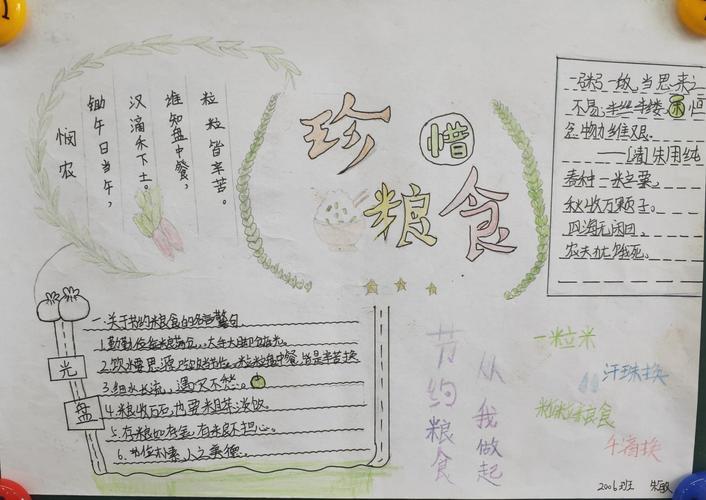 悯农
锄午日当午,
汉滴禾下土。
谁知盘中餐,
粒粒皆辛苦。
珍惜
粮食
一粥一饭,当思来之
不易,半丝半缕 恒
念物力维艰。
——[清]朱用纯
春种一粒粟,
秋收万颗子。
四海无闲田,
农夫犹饿死。
光
盘
关于节约粮食的名言警句
1.勤勤俭俭粮满仓,大手大脚
2.饮水要思源,粒粒盘中餐,皆是辛苦换
3.细水长流,遇灾不愁。
4.粮收万石,也要粗茶淡饭
5.有粮如有金,有粮不担心。
6.节俭朴素,人之美德
节约粮食
从我做起
一粒米
汗珠换
粒粒粮食
千滴换
2006班